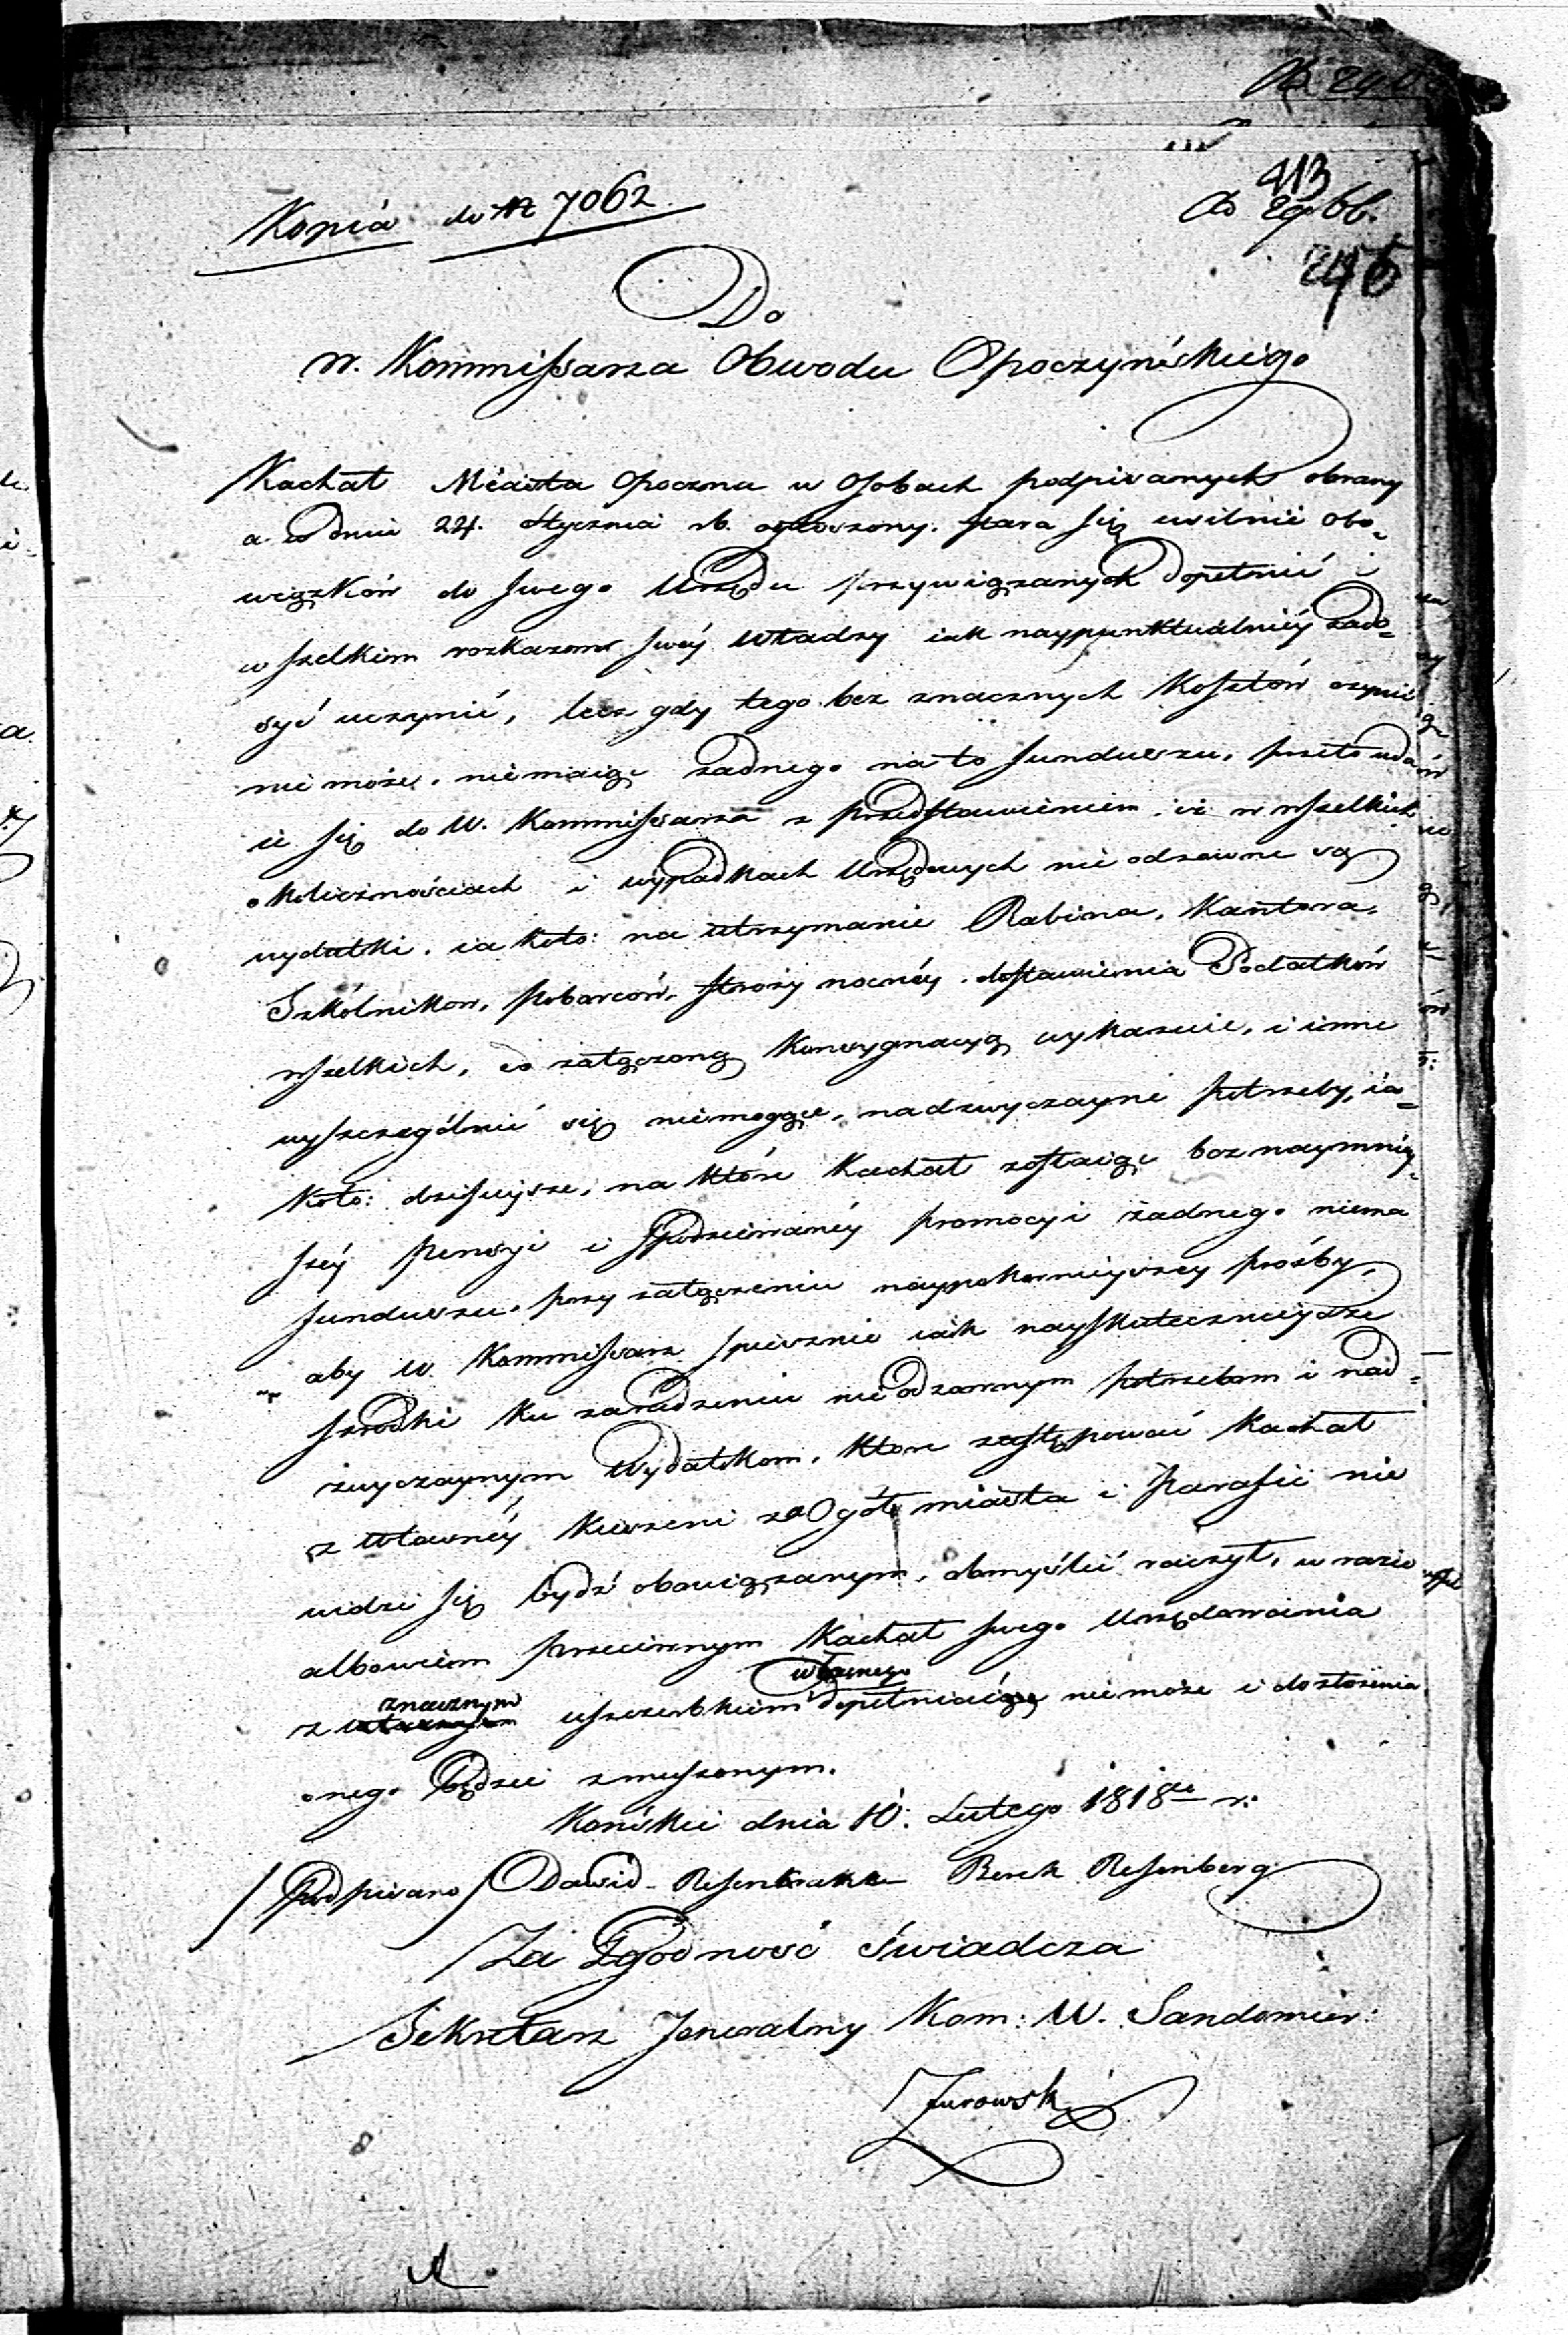 413
Kopia do N 7062.
Ad 2966.
246
Do
W. Kommissarza Obwodu Opoczyńskiego
Kachał Miasta Opoczna w Osobach podpisanych obrany
a w dniu 24. Stycznia rb. ogłoszony. stara się usilnie obo-
wiązków do swego Urzędu przywiązanych dopełnić i
wszelkim rozkazom swéy Władzy iak naypunktualniéy zado-
syć uczynić, lecz gdy tego bez znacznych Kosztów czynić
nie może, niemaiąc żadnego na to funduszu, przeto uda-
ie się do W. Kommissarza z przedstawieniem, iż w wszelkich
okolicznościach i wypadkach Urzędowych nie odzowne są
wydatki, iakoto: na utrzymanie Rabina, Kantora,
Szkólnikow, poborców, stroży nocnéy, dostawienia Podatków
wszelkich, co załączoną Konsygnacyą wykazuie, i inne
wyszczególnić się niemogące, nadzwyczayne potrzeby, ia-
koto: dzisieysze, na które Kachał zostaiąc bez naymniéy-
széy pensyi i spodziewanéy promocyi żadnego niema
funduszu, przy załączeniu naypokornieyszey prośby,
aby W. Kommissarz spiesznie iak nayskutecznieysze
szrodki ku zaradzeniu nie odzownym potrzebom i nad-
zwyczaynym Wydatkom, które zastępować Kachał
z własnéy kieszeni za Ogół miasta i Parafii nie
widzi się bydź obowiązanym, obmyślić raczył, w razie
albowiem przeciwnym Kachał swego Urzędowania
znacznym własnego
z uszczerbkiem dopełniać nie może i do złożenia
onego będzie zmuszonym.
Końskie dnia 10. Lutego 1818go r:
/ Podpisano / Dawid Berek Rosenberg
Za Zgodność świadcza
Sekretarz Jeneralny Kom: W. Sandomier:
Zurowski